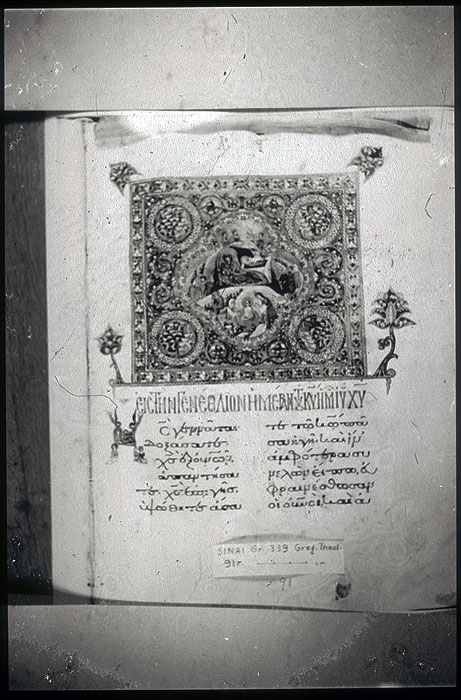 ΕΙΣ ΤΗΝ ΓΕΝΕΘΛΙΟΝ ΗΜΕΡΑΝ ΤΟΥ ΚΥ ΗΜ ΙΥ ΧΥ
Χς γεννᾶται
δοξάσατε·
χς ἐξ οὐνῶν
ἀπαντήσα
τε· χς ἐπὶ γῆς
ὑψώθητε· ἄσα
τε τῷ κῷ πᾶ
σα ἡ γῆ· καὶ ἵν'
ἀμφότερα συ
νελὼν εἴπω, εὐ
φραινέσθωσαν
οἱ οὐνοὶ καὶ ἀ
SINAI Gr. 339 Greg. Theol.
91r
91